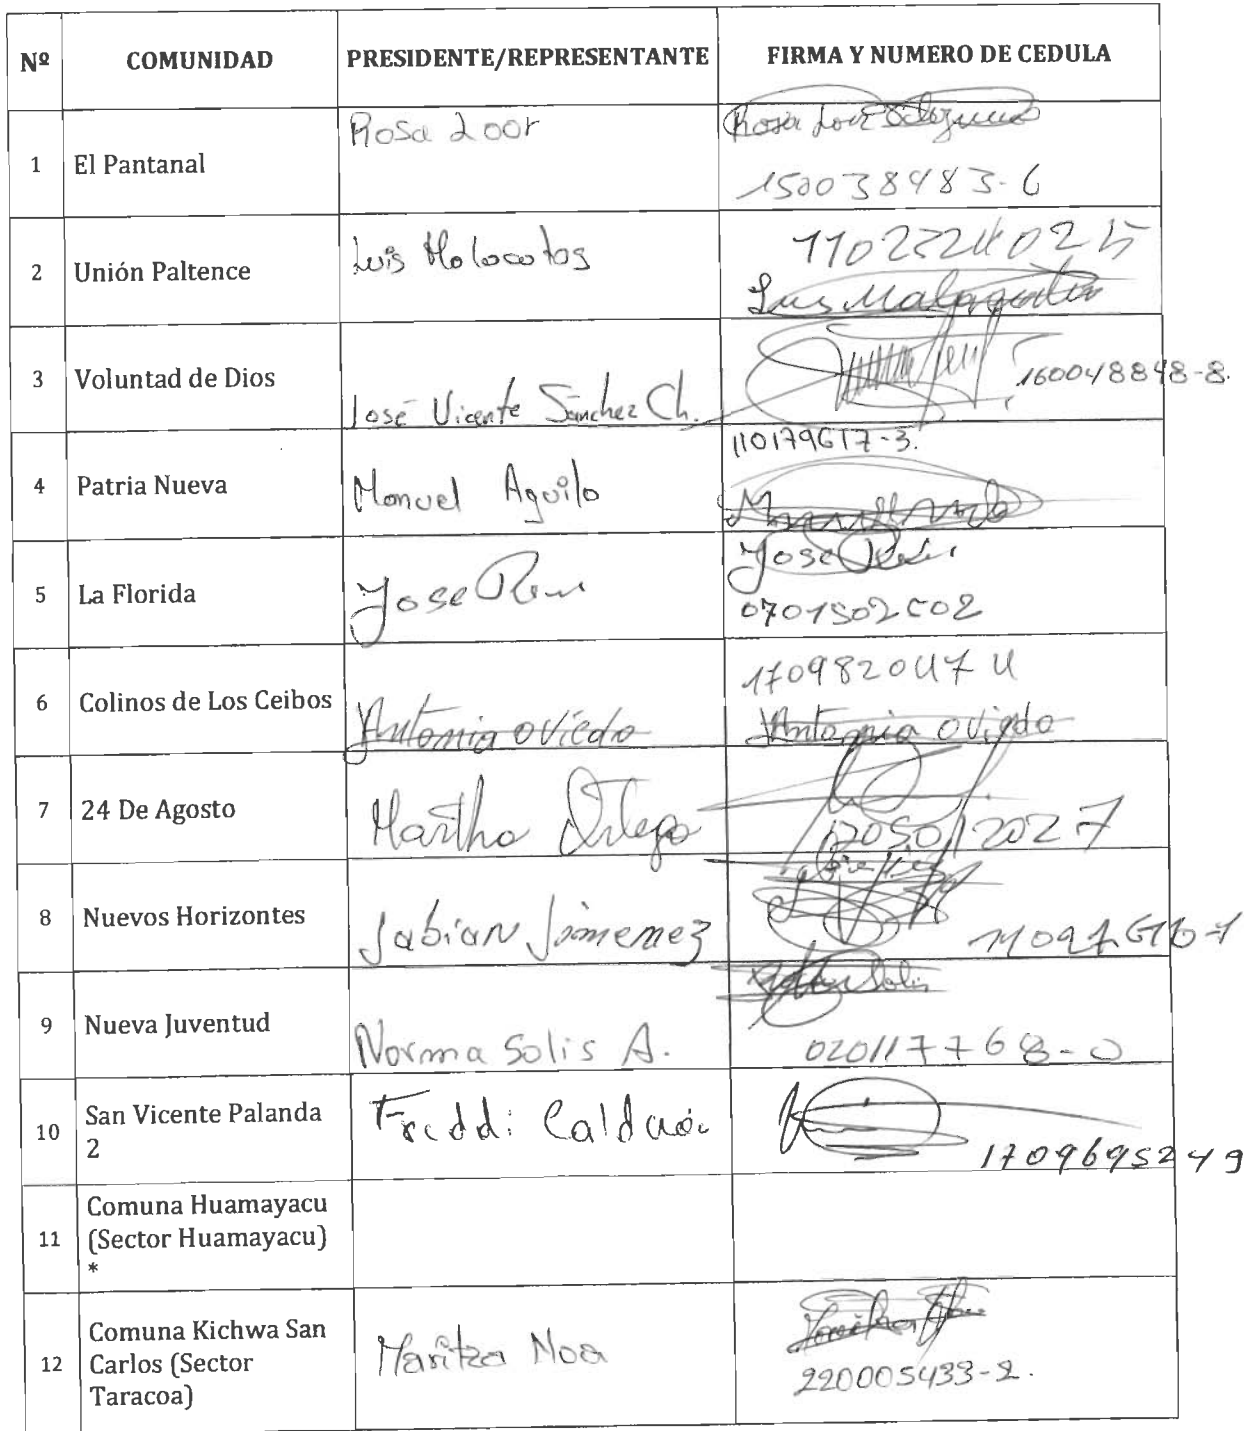 Nº COMUNIDAD PRESIDENTE/REPRESENTANTE FIRMA Y NUMERO DE CEDULA
1 El Pantanal Rosa Loor Rosa Loor
150038483-6
2 Unión Paltence Luis Malacatos 1102224025
Luis
3 Voluntad de Dios José Vicente Sánchez Ch. 160048848-8.
4 Patria Nueva Manuel Aguila 110179617-3.
5 La Florida Jose Jose
0701502602
6 Colinos de Los Ceibos Antonia oviedo 1709820474
Antonia oviedo
7 24 De Agosto Martha Ortega 1205012027
8 Nuevos Horizontes Fabian Jimenez
9 Nueva Juventud Norma Solis A. Solis
020117768-0
10 San Vicente Palanda
2 Freddi Calderón 1709695249
11 Comuna Huamayacu
(Sector Huamayacu)
*
12 Comuna Kichwa San
Carlos (Sector
Taracoa) Maritza Noa
220005433-2.